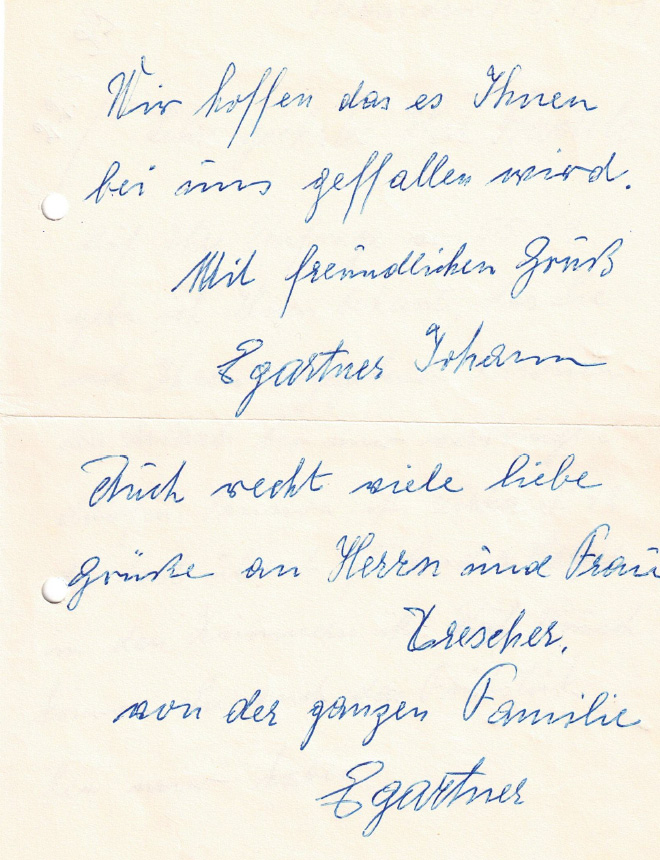 Wir hoffen das es Ihnen
bei uns geffallen wird.
Mit freundlichen Gruß
Egartner Johann
Auch recht viele liebe
Grüße an Herrn und Frau
Trescher.
von der ganzen Familie
Egartner